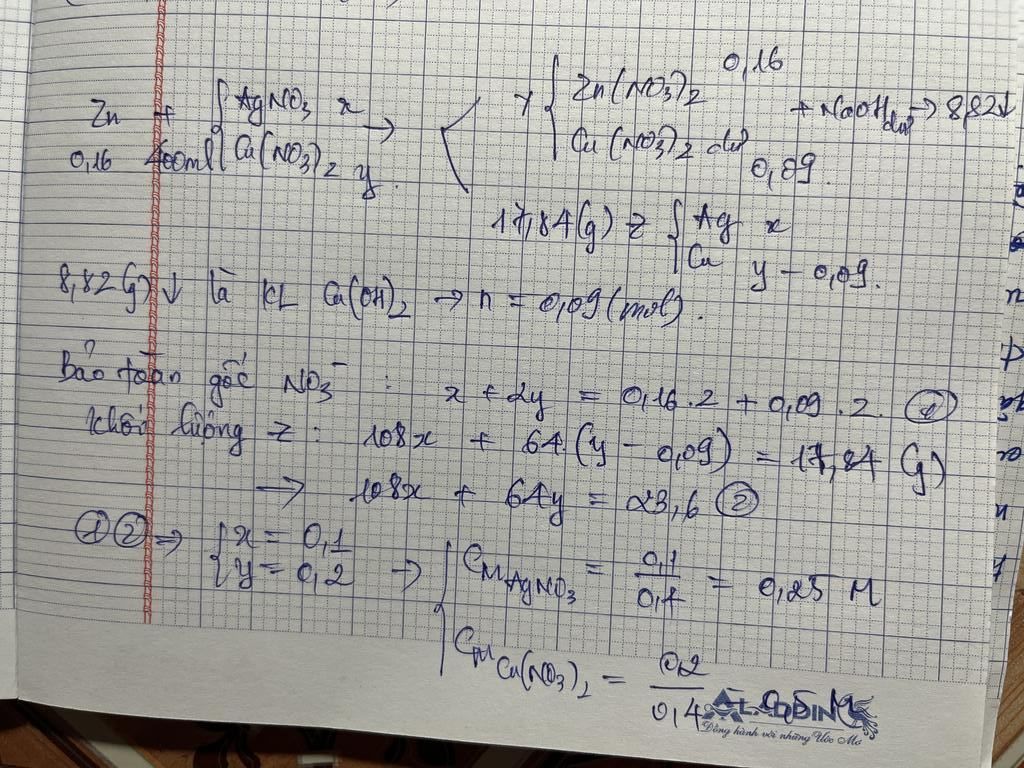 0,16
Zn + { AgNO3 x → Y { Zn(NO3)2 + NaOH dư → 8,82↓
0,16 400ml { Cu(NO3)2 y. Cu(NO3)2 dư 0,09.
17,84(g) Z { Ag x
Cu y - 0,09.
8,82(g)↓ là KL Cu(OH)2 → n = 0,09(mol).
Bảo toàn gốc NO3⁻ : x + 2y = 0,16.2 + 0,09.2. ①
Khối lượng Z : 108x + 64.(y - 0,09) = 17,84 (g)
→ 108x + 64y = 23,6 ②
①② ⇒ { x = 0,1
{ y = 0,2 → { CM AgNO3 = 0,1/0,4 = 0,25 M
CM Cu(NO3)2 = 0,2/0,4 = 0,5 M
ALADDIN
Đồng hành với những Ước Mơ